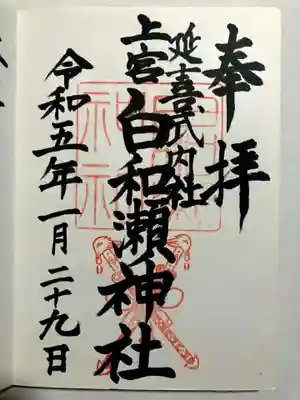 奉拝
延喜式内社
上宮白和瀬神社
令和五年一月二十九日